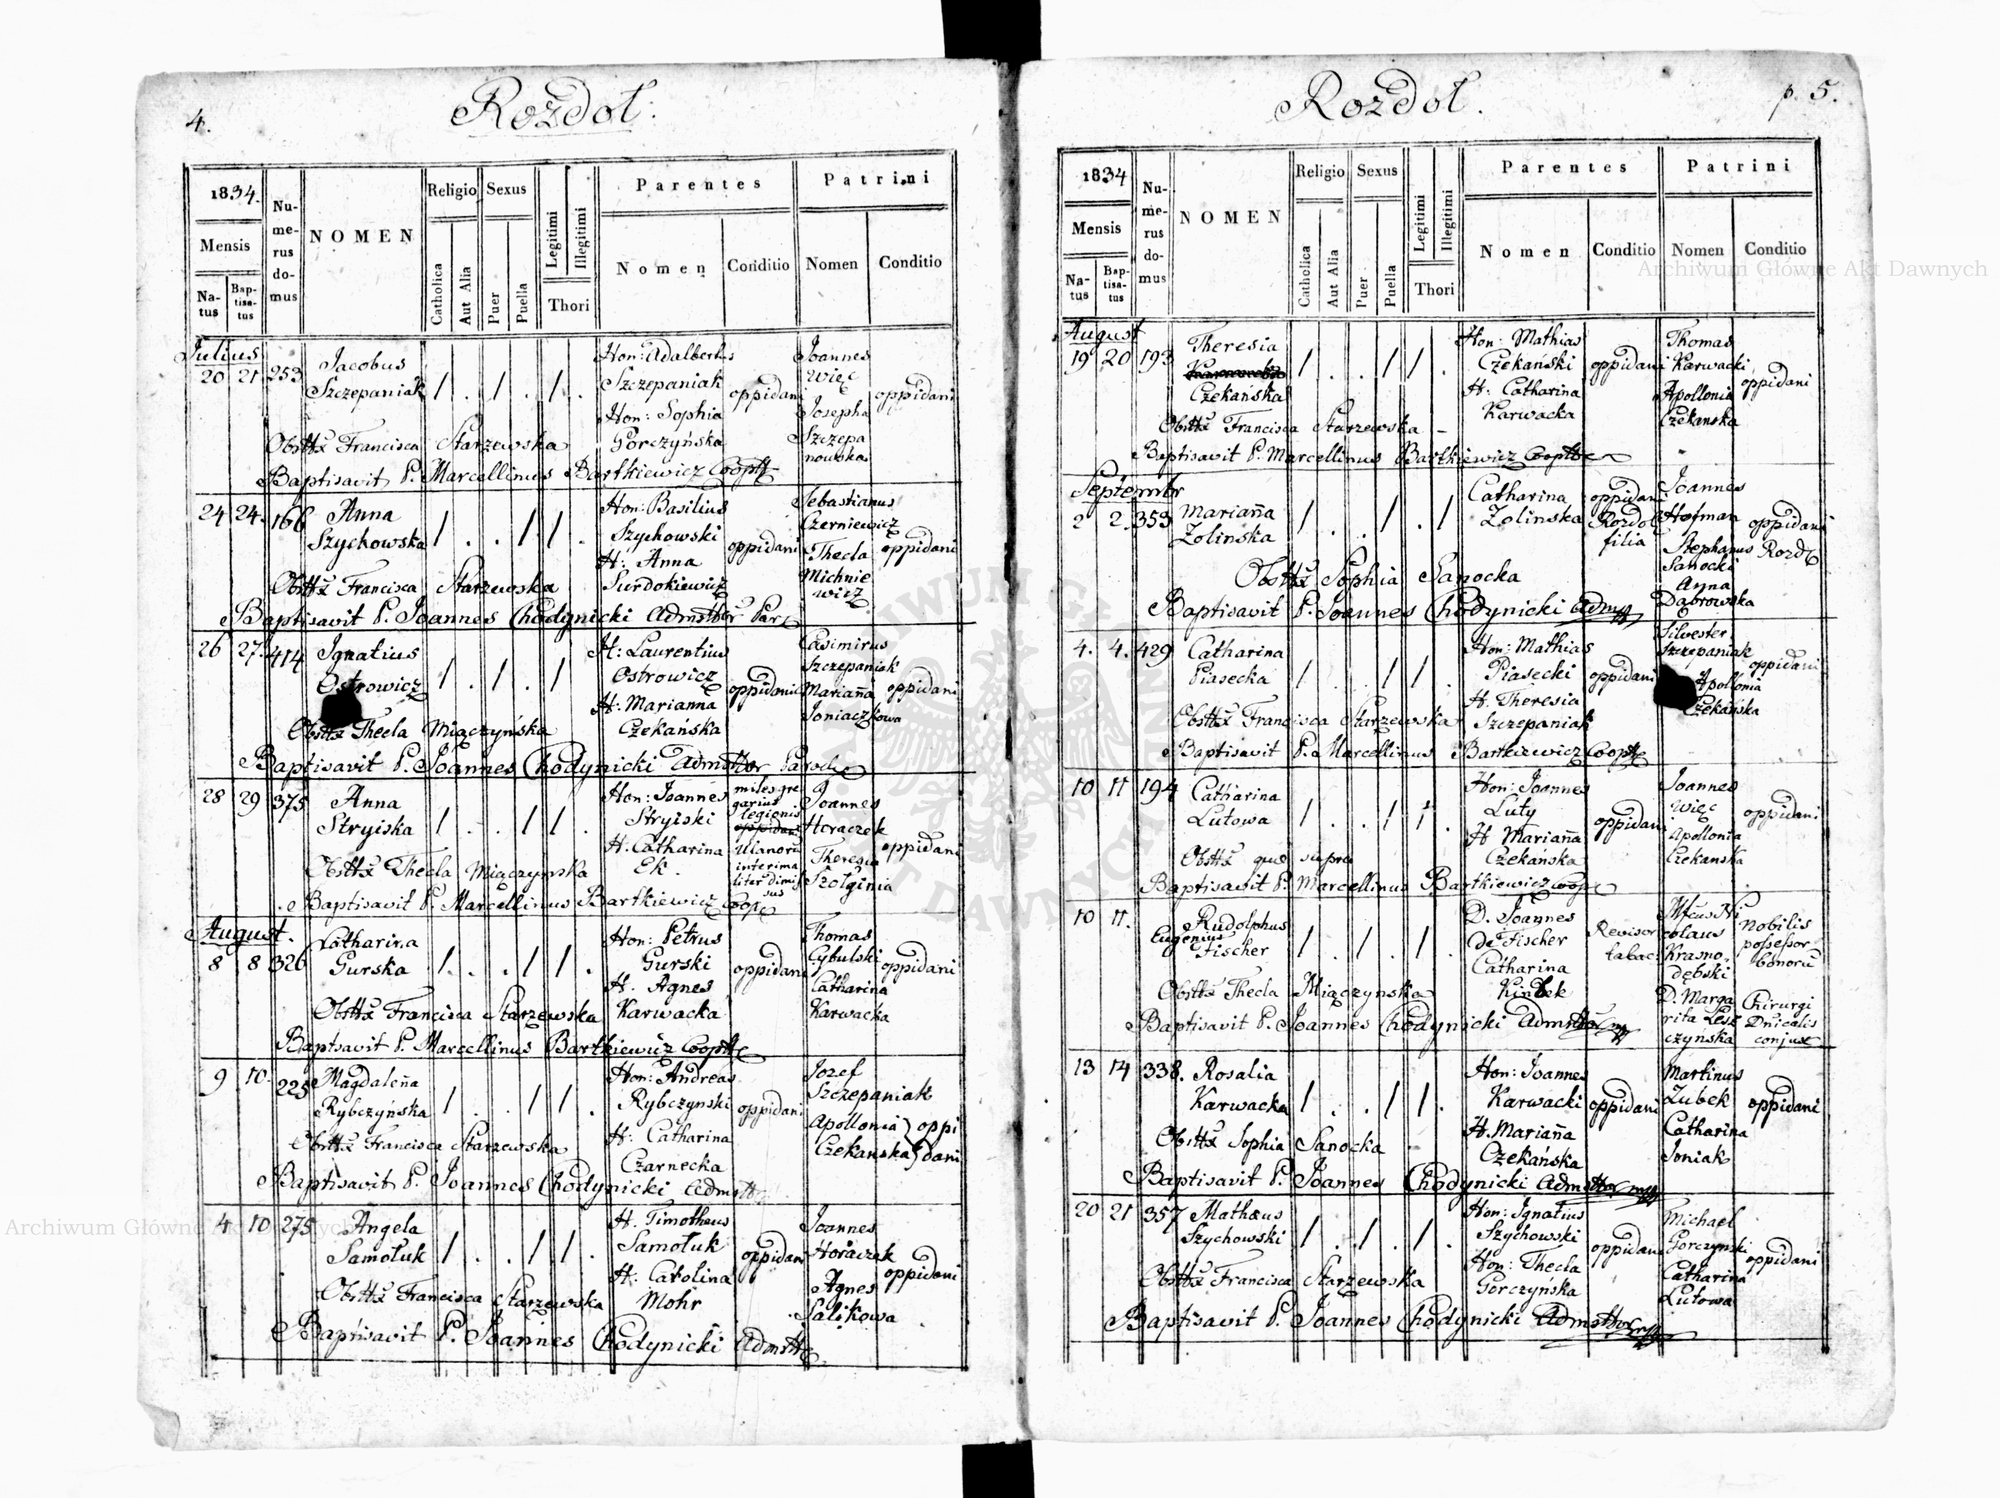 4.
Rozdoł.
1834.
Mensis
Natus
Baptisatus
Numerus domus
NOMEN
Religio
Catholica
Aut Alia
Sexus
Puer
Puella
Legitimi
Illegitimi
Thori
Parentes
Nomen
Conditio
Patrini
Nomen
Conditio
Julius
20 21 253 Jacobus Szczepaniak
1 . 1 . 1 .
Hon: Adalbertus Szczepaniak
Hon: Sophia Gorczyńska
oppidani
Joannes Więc
Josepha Szczepanowska
oppidani
Obsttx Francisca Starzewska
Baptisavit P. Marcellinus Bartkiewicz Cooptr
24 24. 166 Anna Szychowska
1 . . 1 1 .
Hon: Basilius Szychowski
H: Anna Surdokiewicz
oppidani
Sebastianus Czerniewicz
Thecla Michniewicz
oppidani
Obsttx Francisca Starzewska
Baptisavit P. Joannes Chodynicki Admsttor Par
26 27. 414 Ignatius Ostrowicz
1 . 1 . 1 .
H: Laurentius Ostrowicz
H: Marianna Czekańska
oppidani
Casimirus Szczepaniak
Mariaña Joniaczkowa
oppidani
Obsttx Thecla Miączyńska
Baptisavit P. Joannes Chodynicki Admsttor Paroch
28 29 375 Anna Stryiska
1 . . 1 1 .
Hon: Joannes Stryiski
H. Catharina Ek.
miles gregarius legionis oppidani Ulanorū interimaliter dimissus
Joannes Horaczek
Theresia Szolginia
oppidani
Obsttx Thecla Miączynska
Baptisavit P. Marcellinus Bartkiewicz Coop
August.
8 8 326 Catharina Gurska
1 . . 1 1 .
Hon: Petrus Gurski
H. Agnes Karwacka
oppidani
Thomas Cybulski
Catharina Karwacka
oppidani
Obsttx Francisca Starzewska
Baptsavit P. Marcellinus Bartkiewicz Cooptr
9 10. 225 Magdaleña Rybczyńska
1 . . 1 1 .
Hon: Andreas Rybczynski
H: Catharina Czarnecka
oppidani
Jozef Szczepaniak
Apollonia Czekanska
oppidani
Obsttx Francisca Starzewska
Baptisavit P. Joannes Chodynicki Admstto
4 10 275 Angela Samołuk
1 . . 1 1 .
H. Timotheus Samołuk
H: Carolina Mohr
oppidani
Joannes Horaczek
Agnes Salikowa
oppidani
Obsttx Francisca Starzewska
Baptisavit P. Joannes Chodynicki Admstt
p. 5.
Rozdoł.
1834
Mensis
Natus
Baptisatus
Numerus domus
NOMEN
Religio
Catholica
Aut Alia
Sexus
Puer
Puella
Legitimi
Illegitimi
Thori
Parentes
Nomen
Conditio
Patrini
Nomen
Conditio
August
19 20 193 Theresia Czekańska
1 . . 1 1 .
Hon: Mathias Czekański
H: Catharina Karwacka
oppidani
Thomas Karwacki
Apollonia Czekanska
oppidani
Obsttx Francisca Starzewska
Baptisavit P. Marcellinus Bartkiewicz Cooptor
Septembr
2 2. 353 Mariaña Zolinska
1 . . 1 . 1
Catharina Zolinska
oppidani Rozdoł filia
Joannes Hofman
Stephanus Sanocki
Anna Dąbrowska
oppidani Rozd
Obsttx Sophia Sanocka
Baptisavit P. Joannes Chodynicki Adm
4. 4. 429 Catharina Piasecka
1 . . 1 1 .
Hon: Mathias Piasecki
H. Theresia Szczepaniak
oppidani
Silvester Szczepaniak
Apollonia Czekańska
oppidani
Obsttx Francisca Starzewska
Baptisavit P. Marcellinus Bartkiewicz Cooptr
10 11 194 Catharina Lutowa
1 . . 1 1 .
Hon: Joannes Luty
H Mariaña Czekańska
oppidani
Joannes Więc
Apollonia Czekanska
oppidani
Obsttx que supra
Baptisavit P. Marcellinus Bartkiewicz Coop
10 11. Rudolphus Eugenius Fischer
1 . 1 . 1 .
D. Joannes De Fischer
Catharina Kinbek
Revisor tabac:
Nicolaus Krasnodębski
D. Margarita Leszczyńska
Nobilis possessor bonorū
Chirurgi Dnicalis conjux
Obsttx Thecla Miączynska
Baptisavit P. Joannes Chodynicki Admsttor
13 14 338. Rosalia Karwacka
1 . . 1 1 .
Hon: Joannes Karwacki
H. Mariaña Czekańska
oppidani
Martinus Zubek
Catharina Joniak
oppidani
Obsttx Sophia Sanocka
Baptisavit P. Joannes Chodynicki Admsttor
20 21 357 Mathæus Szychowski
1 . 1 . 1 .
Hon: Ignatius Szychowski
Hon: Thecla Gorczyńska
oppidani
Michael Gorczynski
Catharina Lutowa
oppidani
Obsttx Francisca Starzewska
Baptisavit P. Joannes Chodynicki Admsttor
Archiwum Główne Akt Dawnych
Archiwum Główne Akt Dawnych
ARCHIWUM GŁÓWNE AKT DAWNYCH